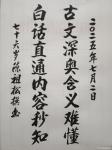 二〇二五年七月二日
古文深奥含义难懂
白话直通内容秒知
七十六岁徐祖松撰书